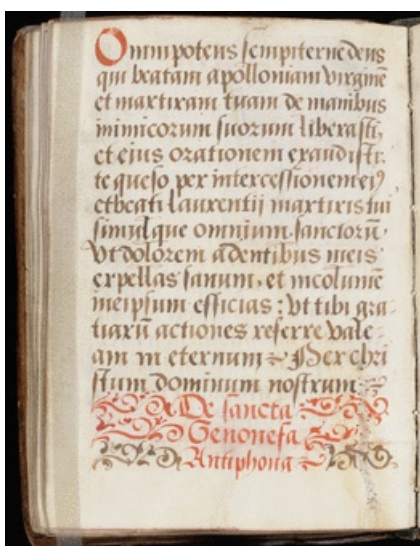 Omnipotens sempiterne deus
qui beatam apolloniam virginē
et martiram tuam de manibus
inimicorum suorum liberasti,
et eius orationem exaudisti.
te queso per intercessionem eiꝰ
et beati laurentii martiris tui
simulque omnium sanctorū.
Vt dolorem a dentibus meis
expellas sanum, et incolumē
meipsum efficias: Vt tibi gra
tiarū actiones referre vale-
am in eternum Per chri
stum dominum nostrum
De sancta
Genouefa
Antiphona